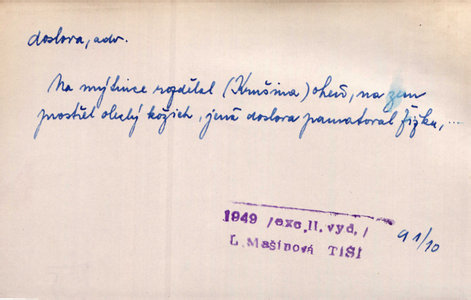 doslova, adv.
Na mýtince rozdělal (Krušina) oheň, na zem
prostřel obstlý kožich, jenž doslova pamatoval Žižku, ...
1949 /exc. II. vyd. /
L Mašínová TIŠI
91/10